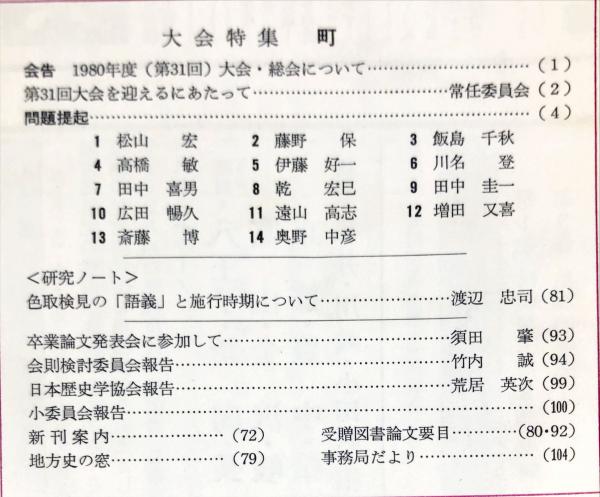 大会特集　町
会告　1980年度（第31回）大会・総会について……………………（1）
第31回大会を迎えるにあたって……………………常任委員会（2）
問題提起……………………………………………………（4）
1 松山　宏　2 藤野　保　3 飯島　千秋
4 高橋　敏　5 伊藤　好一　6 川名　登
7 田中　喜男　8 乾　宏巳　9 田中　圭一
10 広田　暢久　11 遠山　高志　12 増田　又喜
13 斎藤　博　14 奥野　中彦
＜研究ノート＞
色取検見の「語義」と施行時期について……………………渡辺　忠司（81）
卒業論文発表会に参加して……………………須田　肇（93）
会則検討委員会報告……………………竹内　誠（94）
日本歴史学協会報告……………………荒居　英次（99）
小委員会報告……………………………………………………（100）
新刊案内…………………（72）　受贈図書論文要目…………（80・92）
地方史の窓…………………（79）　事務局だより…………………（104）